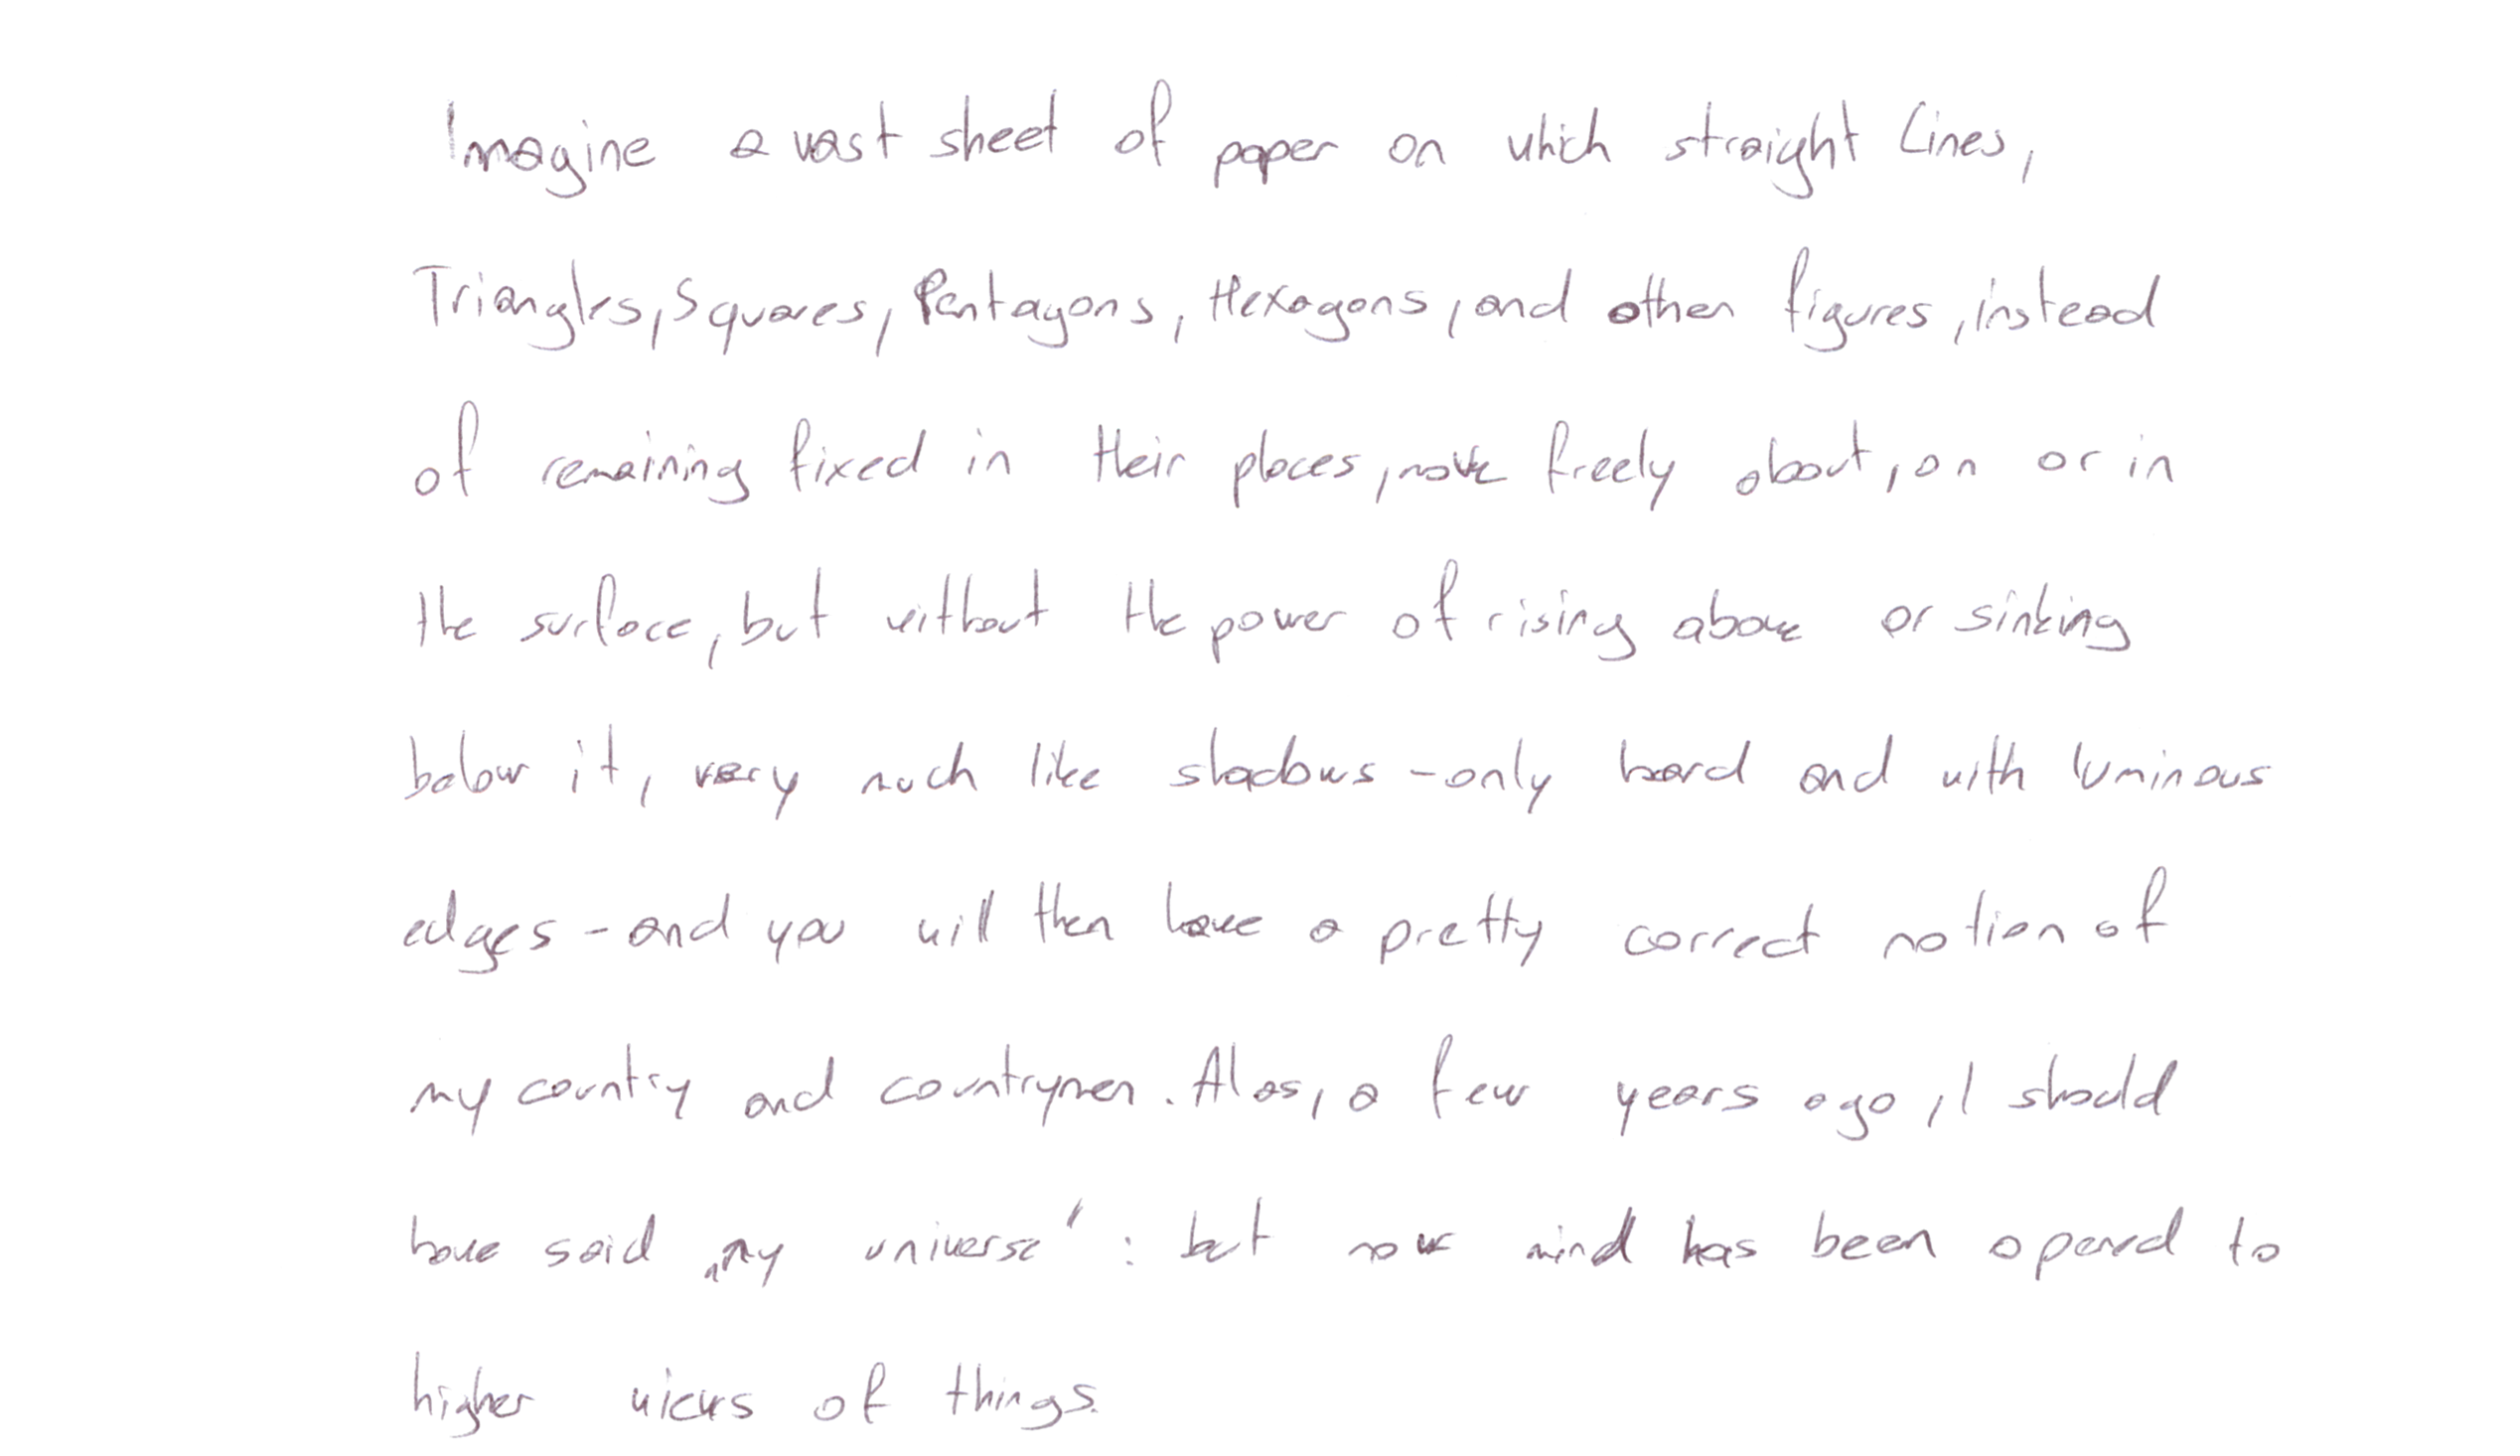 Imagine a vast sheet of paper on which straight Lines,
Triangles, Squares, Pentagons, Hexagons, and other figures, instead
of remaining fixed in their places, move freely about, on or in
the surface, but without the power of rising above or sinking
below it, very much like shadows - only hard and with luminous
edges - and you will then have a pretty correct notion of
my country and countrymen. Alas, a few years ago, I should
have said „my universe“: but now mind has been opened to
higher views of things.